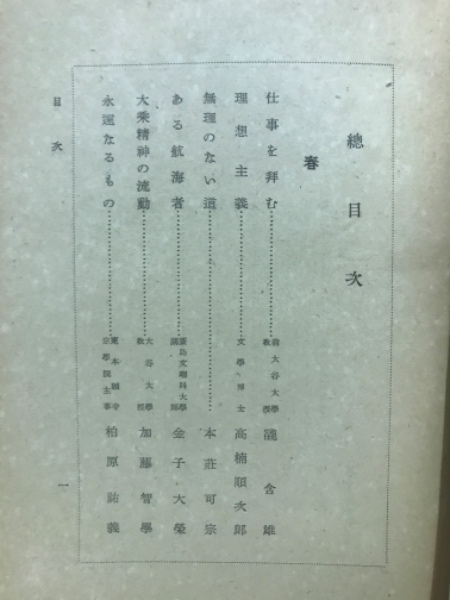 總目次
春
仕事を拜む 前大谷大學教授 諡含雄
理想主義 文學博士 高楠順次郎
無理のない道 本莊可宗
ある航海者 廣島文理科大學講師 金子大榮
大乘精神の流動 大谷大學教授 加藤智學
永遠なるもの 東本願寺宗學院主事 柏原祐義
目次
一